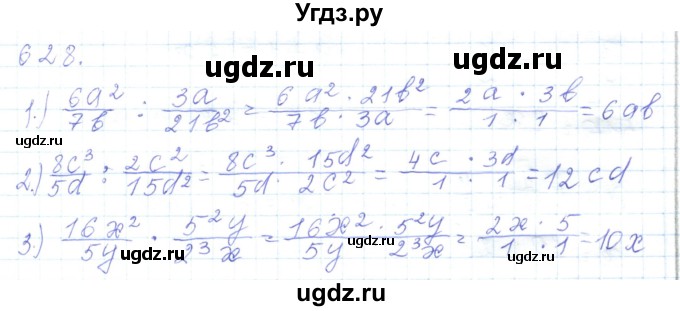 Угдз.ру
628.
ugdz.ru ugdz.ru
1.) 6a²/7b : 3a/21b² = 6a² · 21b²/7b · 3a = 2a · 3b/1 · 1 = 6ab
ugdz.ru ugdz.ru
2.) 8c³/5d : 2c²/15d² = 8c³ · 15d²/5d · 2c² = 4c · 3d/1 · 1 = 12cd
ugdz.ru ugdz.ru
3.) 16x²/5y · 5²y/2³x = 16x² · 5²y/5y · 2³x = 2x · 5/1 · 1 = 10x
ugdz.ru ugdz.ru
ugdz.ru ugdz.ru